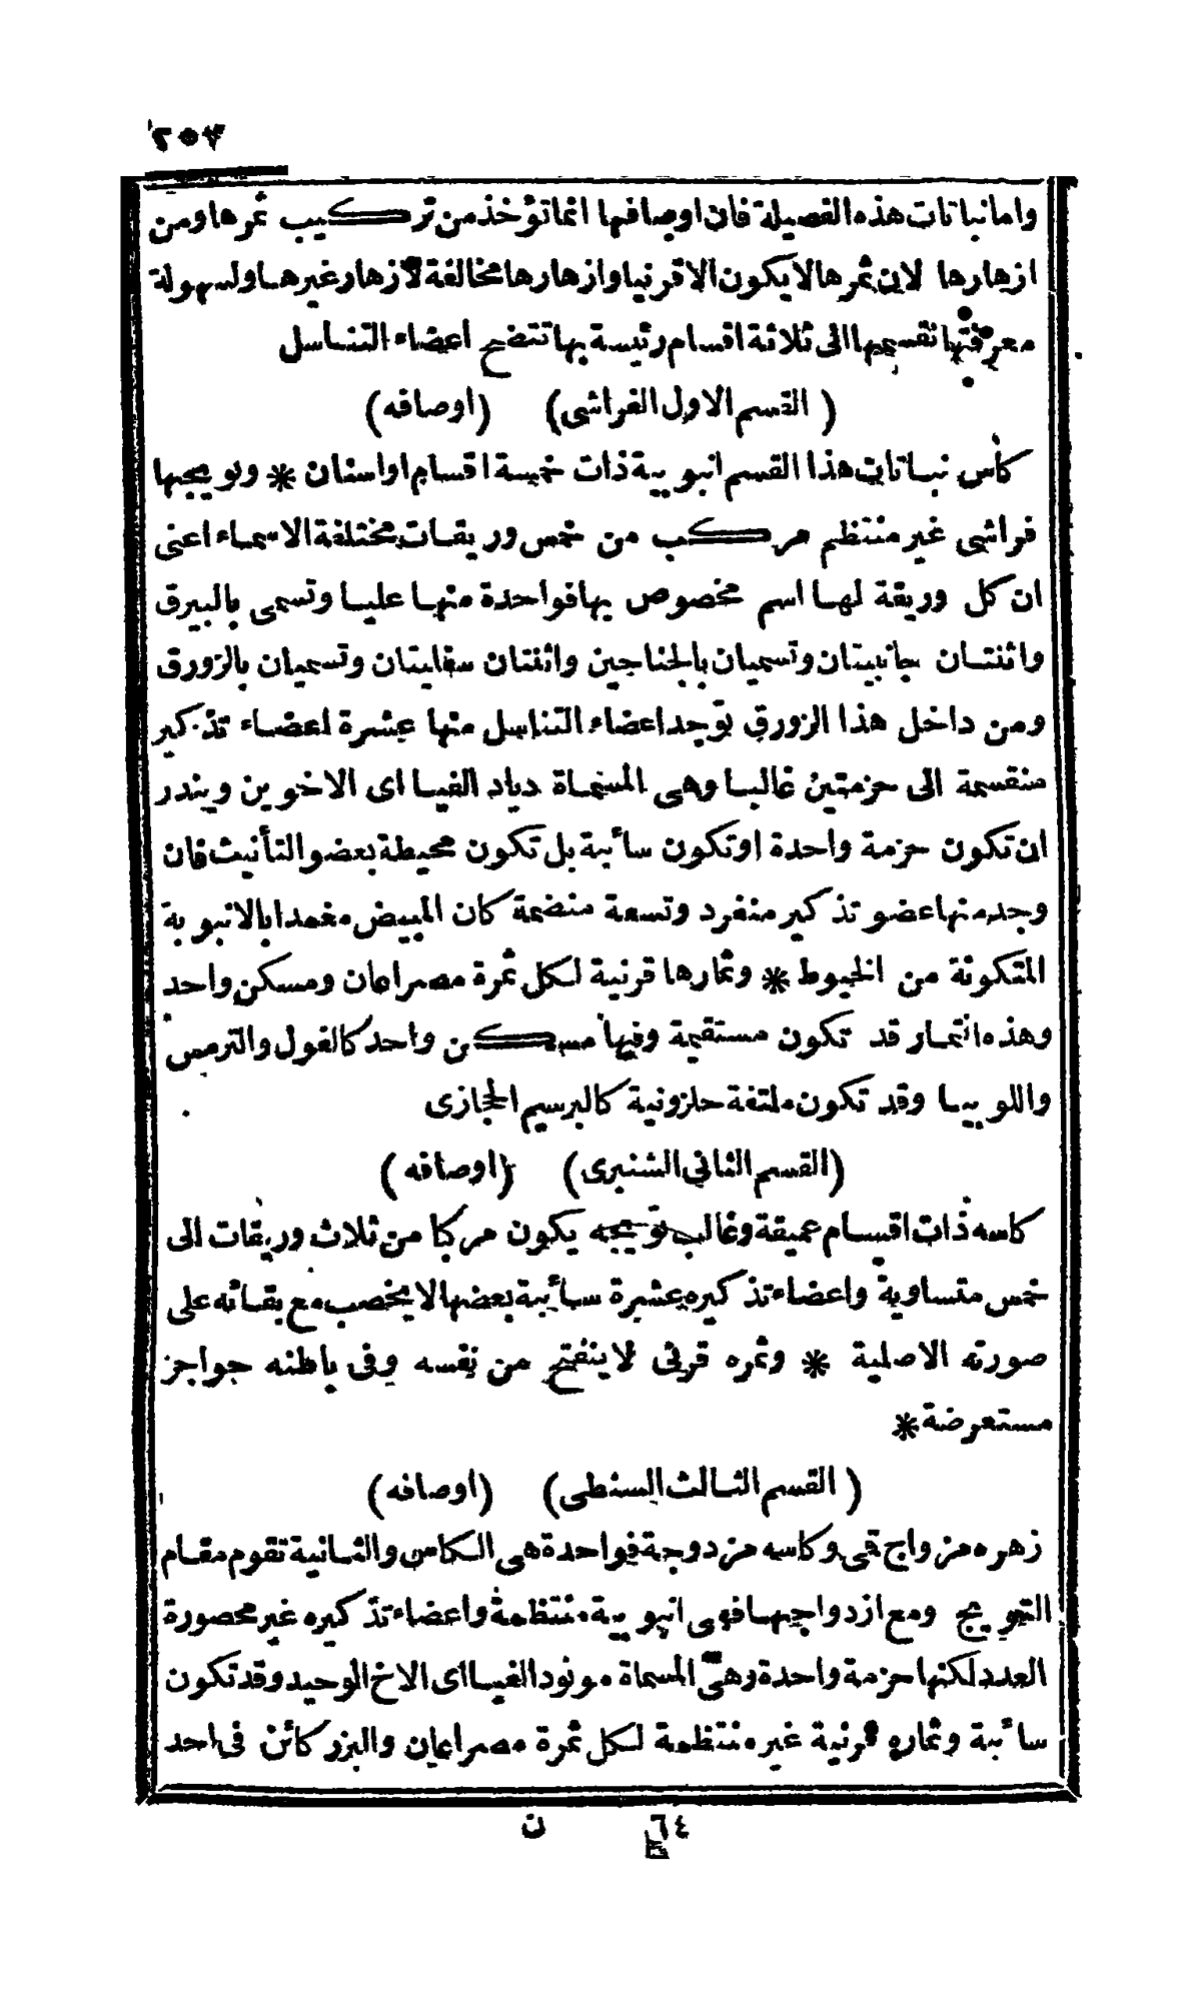 ٢٥٣
واما نباتات هذه الفصيلة فان اوصافها انما تؤخذ من تركيب ثمرها ومن
ازهارها لان ثمرها لا يكون الا قرنيا وازهارها مخالفة لازهار غيرها ولسهولة
معرفتها نقسمها الى ثلاثة اقسام رئيسة بها تتضح اعضاء التناسل
( القسم الاول الفراشى ) ( اوصافه )
كأس نباتات هذا القسم انبوبية ذات خمسة اقسام او اسنان * وتويجها
فراشى غير منتظم مركب من خمس وريقات مختلفة الاسماء اعنى
ان كل وريقة لها اسم مخصوص بها فواحدة منها عليا وتسمى بالبيرق
واثنتان جانبيتان وتسميان بالجناحين واثنتان سفليتان وتسميان بالزورق
ومن داخل هذا الزورق توجد اعضاء التناسل منها عشرة اعضاء تذكير
منقسمة الى حزمتين غالبا وهى المسماة دياد الفيا اى الاخوين ويندر
ان تكون حزمة واحدة او تكون سائبة بل تكون محيطة بعضو التأنيث فان
وجد منها عضو تذكير منفرد وتسعة منضمة كان المبيض مغمدا بالانبوبة
المتكونة من الخيوط * وثمارها قرنية لكل ثمرة مصراعان ومسكن واحد
وهذه اثمار قد تكون مستقيمة وفيها مسكن واحد كالفول والترمس
واللوبيا وقد تكون ملتفة حلزونية كالبرسيم الحجازى
( القسم الثانى الشنبرى ) ( اوصافه )
كاسه ذات اقسام عميقة وغالب تويجه يكون مركبا من ثلاث وريقات الى
خمس متساوية واعضاء تذكيره عشرة سائبة بعضها لا يخصب مع بقائه على
صورته الاصلية * وثمره قرنى لا ينفتح من نفسه وفى باطنه حواجز
مستعرضة *
( القسم الثالث السنطى ) ( اوصافه )
زهره مزواجى وكاسه مزدوجة فواحدة هى الكاس والثانية تقوم مقام
التويج ومع ازدواجها فهى انبوبية منتظمة واعضاء تذكيره غير محصورة
العدد لكنها حزمة واحدة وهى المسماة مونود الفيا اى الاخ الوحيد وقد تكون
سائبة وثماره قرنية غير منتظمة لكل ثمرة مصراعان والبزر كائن فى احد
٦٤ ن